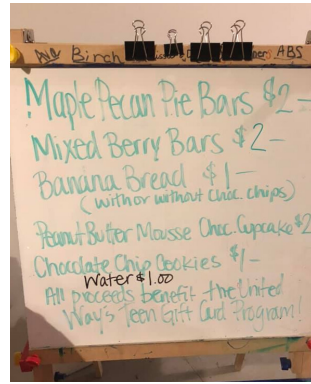 Birch ABS
Maple Pecan Pie Bars $2-
Mixed Berry Bars $2-
Banana Bread $1-
(with or without choc. chips)
Peanut Butter Mousse Choc. Cupcake $2
Chocolate Chip Cookies $1-
Water $1.00
All proceeds benefit the United
Way's Teen Gift Card Program!